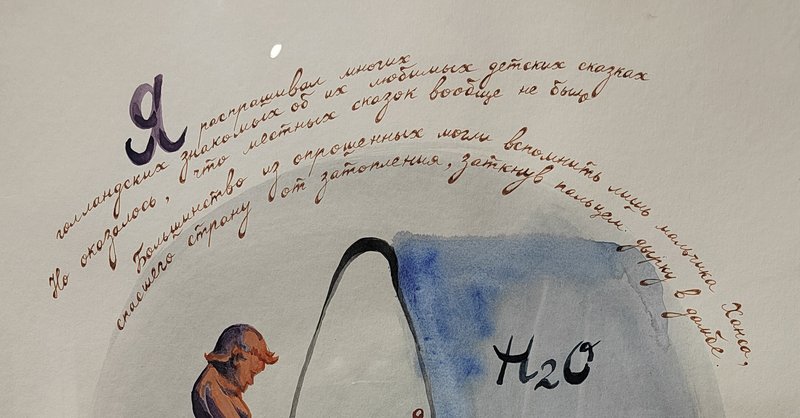 Я распрашивал многих
голландских знакомых об их любимых детских сказках
Но оказалось, что местных сказок вообще не было
Большинство из опрошенных могли вспомнить лишь мальчика Ханса,
спасшего страну от затопления, заткнув пальцем дырку в дамбе.
H2O